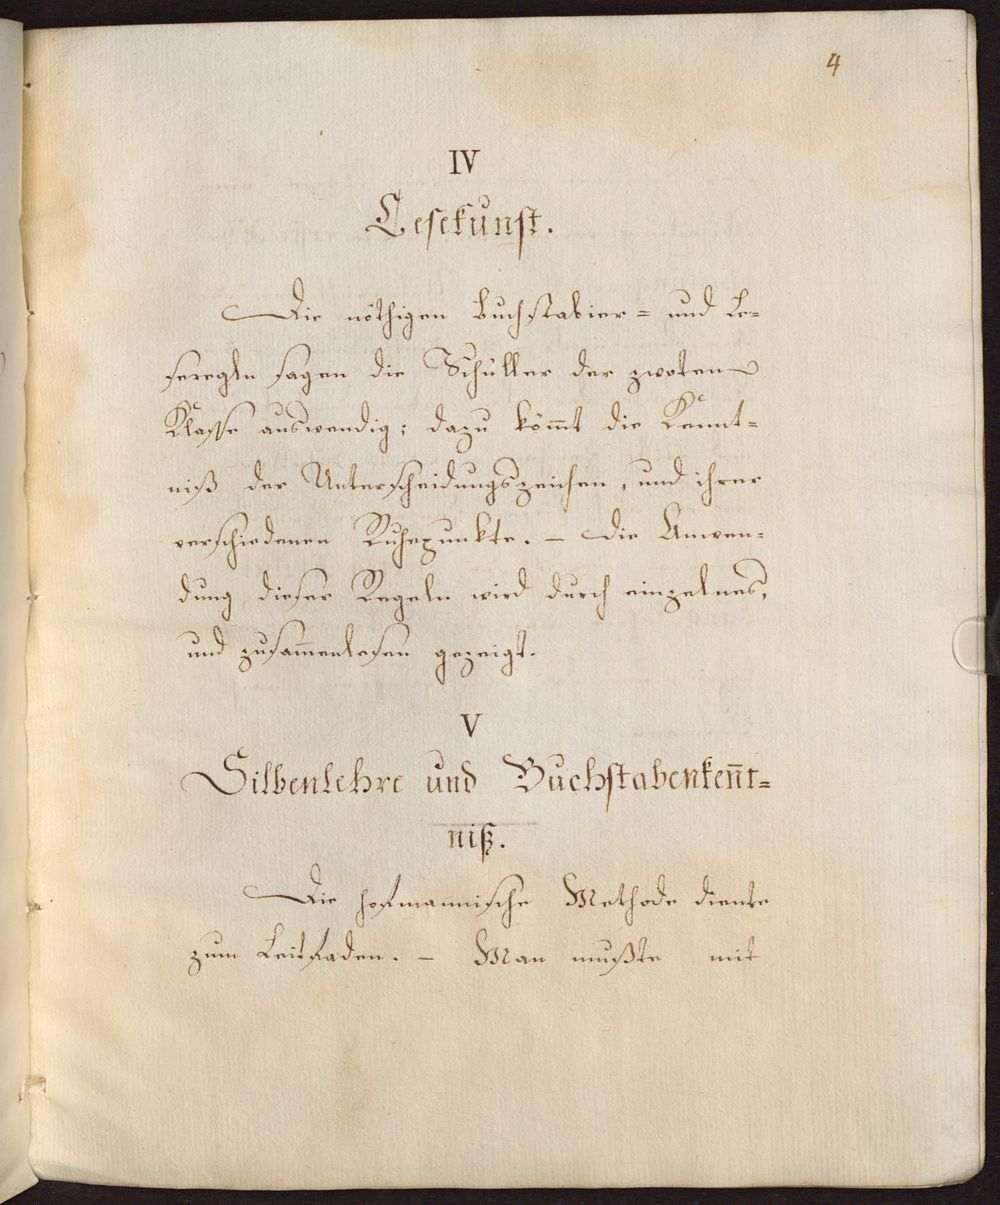 4
IV
Lesekunst.
Die nöthigen Buchstabier= und Le=
seregln sagen die Schüller der zwoten
Klasse auswendig; dazu köm̅t die Kennt=
niß der Unterscheidungszeichen, und ihrer
verschiedenen Ruhepunkte. – Die Anwen=
dung dieser Regeln wird durch einzelnes,
und zusam̅enlesen gezeigt.
V
Silbenlehre und Buchstabenken̅t=
niß.
Die hofmannische Methode diente
zum Leitfaden. – Man mußte mit